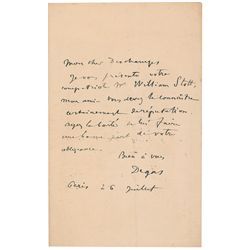 Mon cher Deschamps
Je vous présente votre
compatriote Mr William Stott,
mon ami. Vous devez le connaître
certainement de réputation
Ayez la bonté de lui faire
une bonne part de votre
obligeance.
Bien à vous
Degas
Paris 26 Juillet